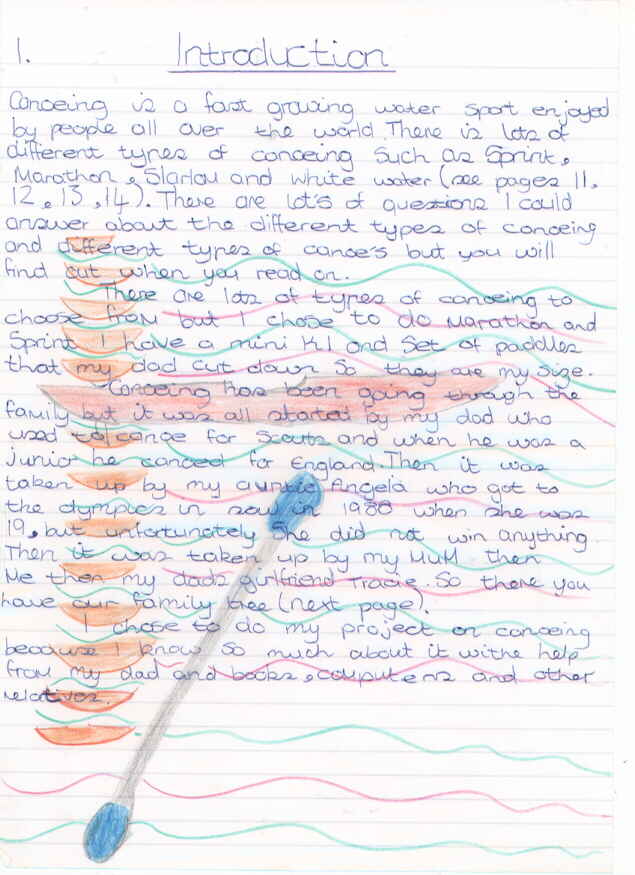 1. Introduction
Canoeing is a fast growing water sport enjoyed
by people all over the world. There is lots of
different types of canoeing such as Sprint,
Marathon, Slarlou and white water (see pages 11,
12, 13, 14). There are lot's of questions I could
answer about the different types of canoeing
and different types of canoe's but you will
find out when you read on.
There are lots of types of canoeing to
choose from but I chose to do Marathon and
Sprint I have a mini K1 and set of paddles
that my dad cut down so they are my size.
Canoeing has been going through the
family but it was all started by my dad who
used to canoe for Scouts and when he was a
junior he canoed for England. Then it was
taken up by my auntie Angela who got to
the olympics in in 1980 when she was
19, but unfortunately she did not win anything.
Then it was taken up by my MuM then
Me then my dads girlfriend Tracie. So there you
have our family tree (next page).
I chose to do my project on canoeing
because I know so much about it withe help
from my dad and books, computers and other
relatives.